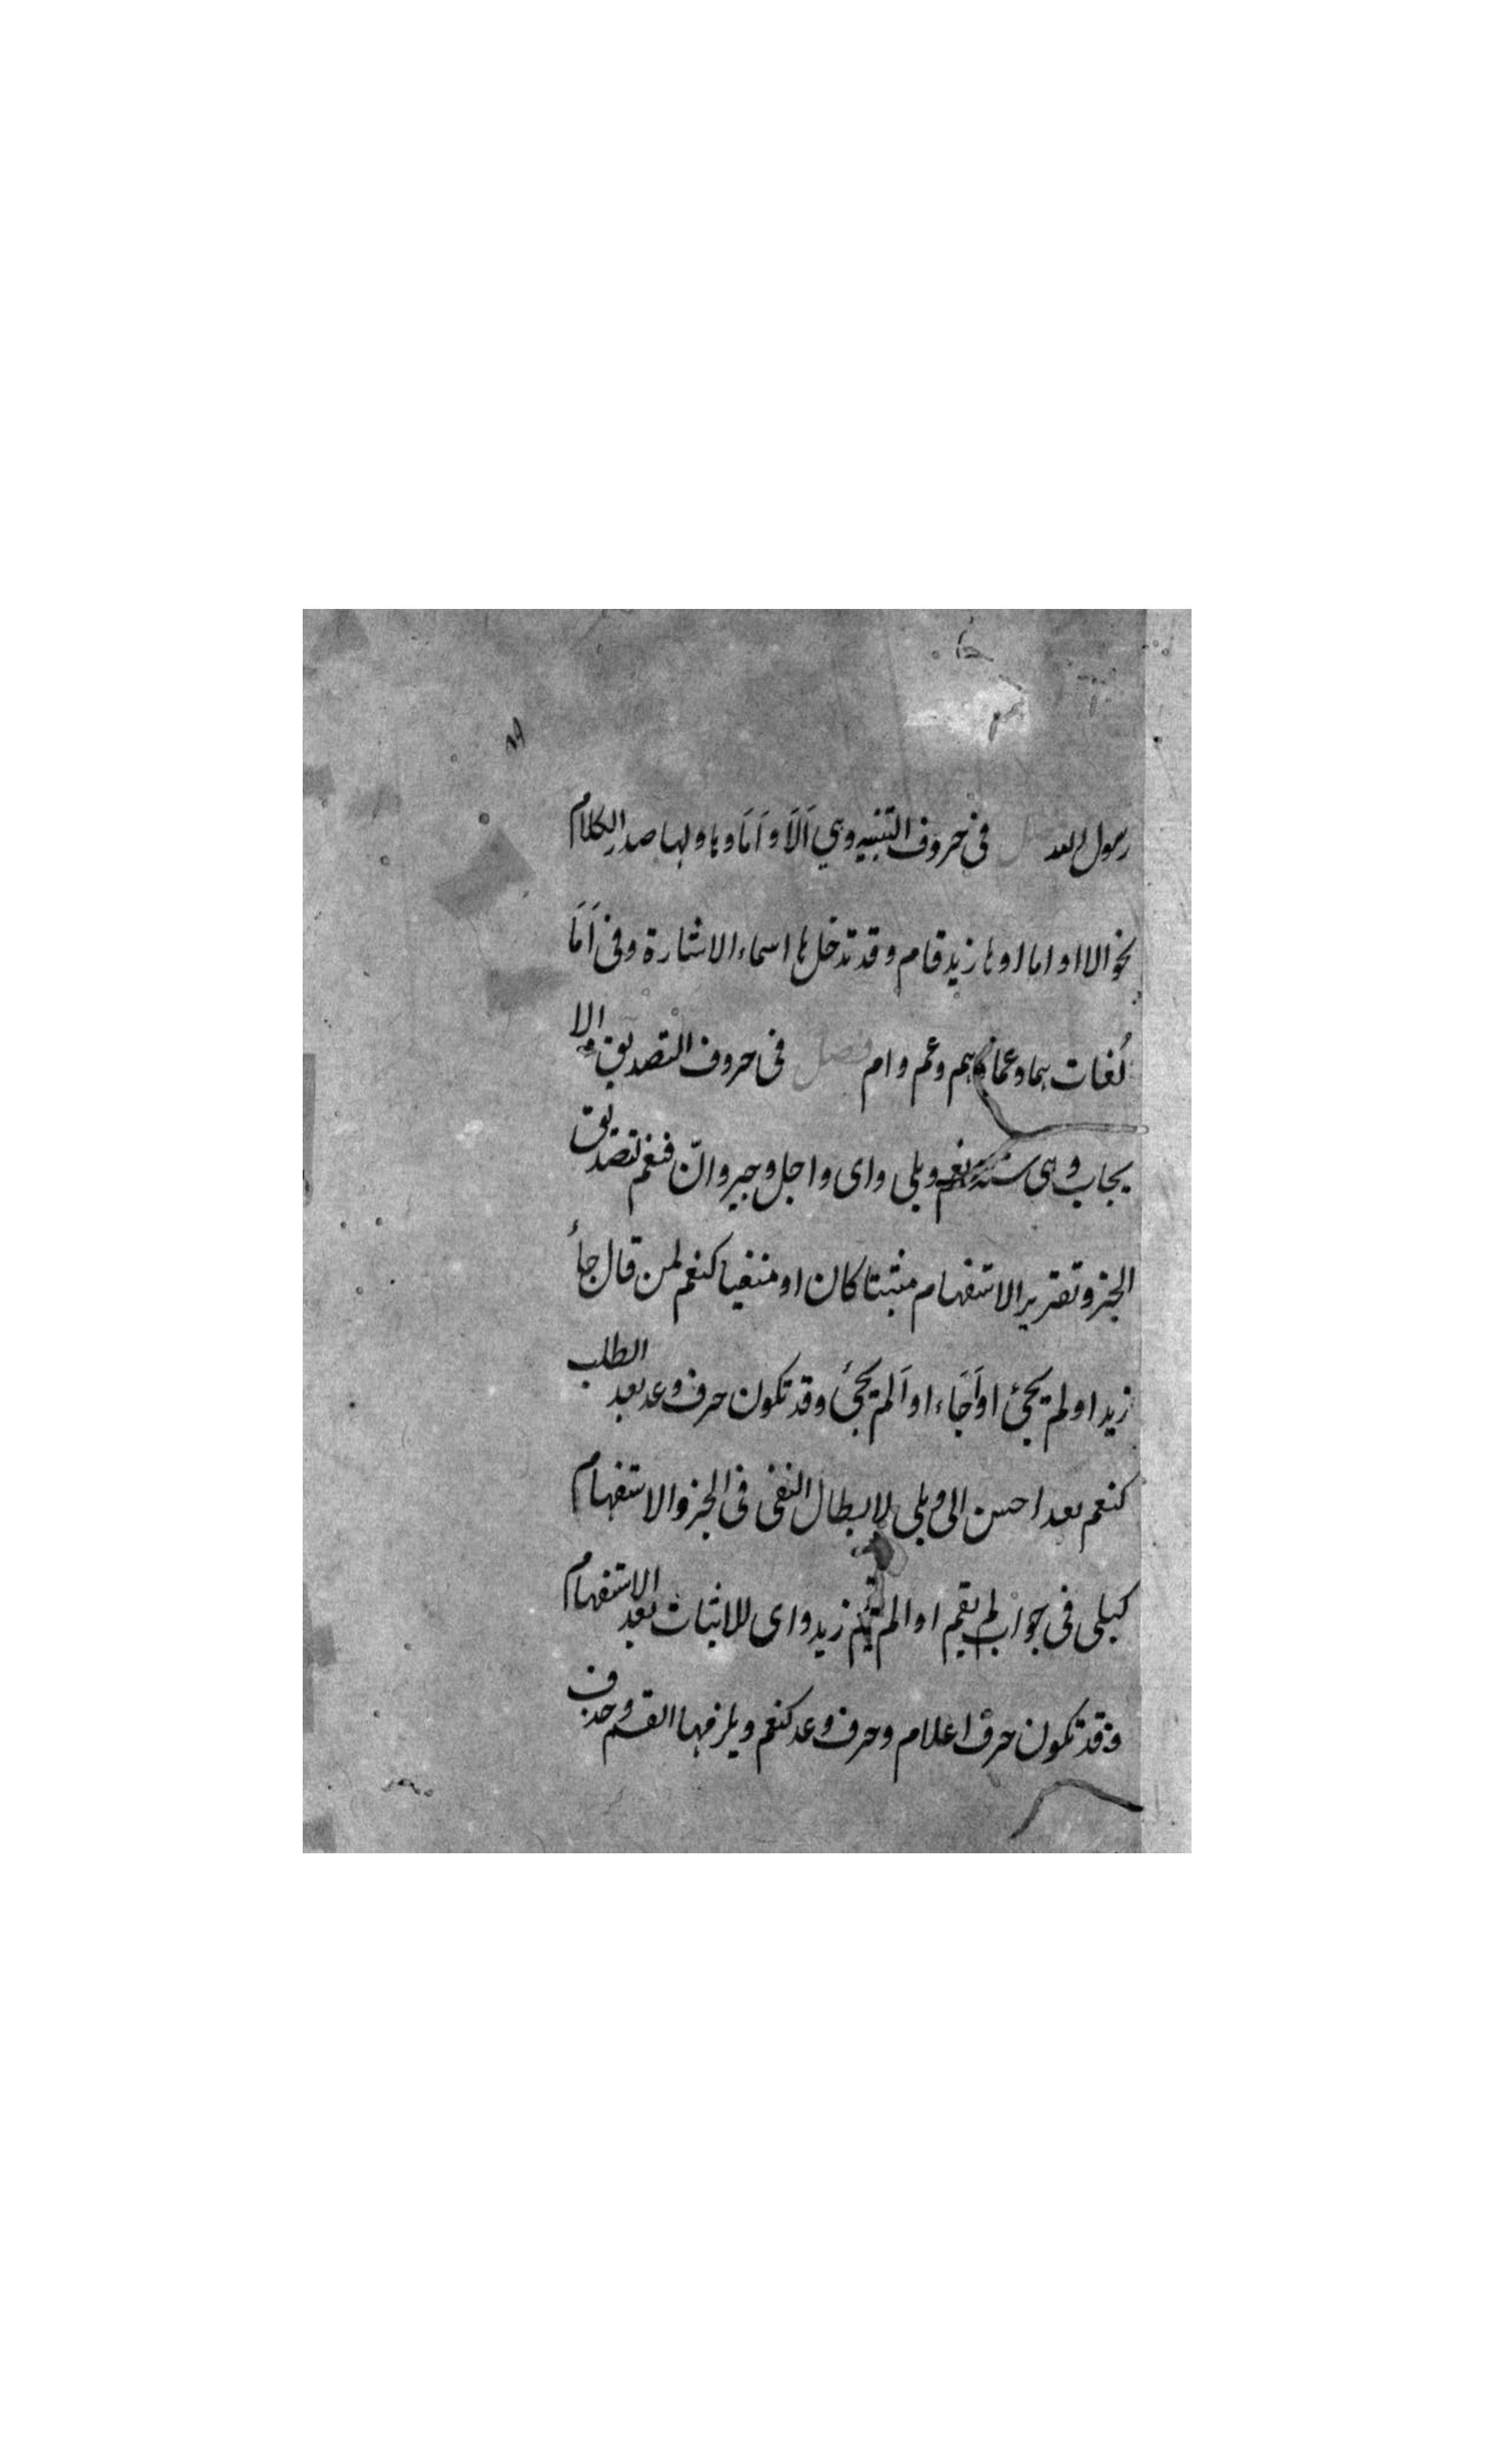 رسول الله فصل فى حروف التنبيه وهي اَلَا واَمَا وها ولها صدر الكلام
نحو الا او اما او ها زيد قام وقد تدخل ها اسماء الاشارة وفى اَمَا
لغات هما وعما وهم وعم وام فصل فى حروف التصديق والا
يجاب وهى ستة نعم وبلى واى واجل وجير وانّ فنعم لتصديق
الخبر وتقرير الاستفهام مثبتا كان او منفيا كنعم لمن قال جأ
زيد او لم يجئ او اَجَاء او اَلم يجئ وقد تكون حرف وعد بعد الطلب
كنعم بعد احسن الى وبلى لابطال النفى فى الخبر والاستفهام
كبلى فى جواب لم يقم او الم يقم زيد واى للاثبات بعد الاستفهام
وقد تكون حرف اعلام وحرف وعد كنعم ويلزمها القسم وحذف